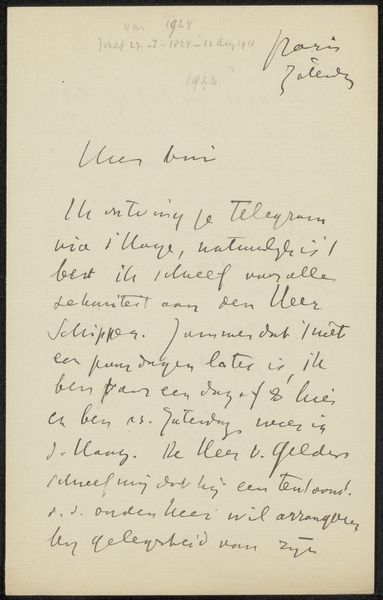 1924
1923
Paris
Zaterdag
Ik ontving je telegram
via s'Hage, natuurlijk is 't
best ik schreef voor alle
sekuriteit aan den Heer
Schipper. Jammer dat 't niet
een paar dagen later is, ik
ben voor een dag of 8 hier
en ben a.s. Zaterdag weer in
s. Haag. De Heer v. Gelder
schreef mij dat hij een tentoonst.
onder heer wil arrangeeren
bij gelegenheid van zijn